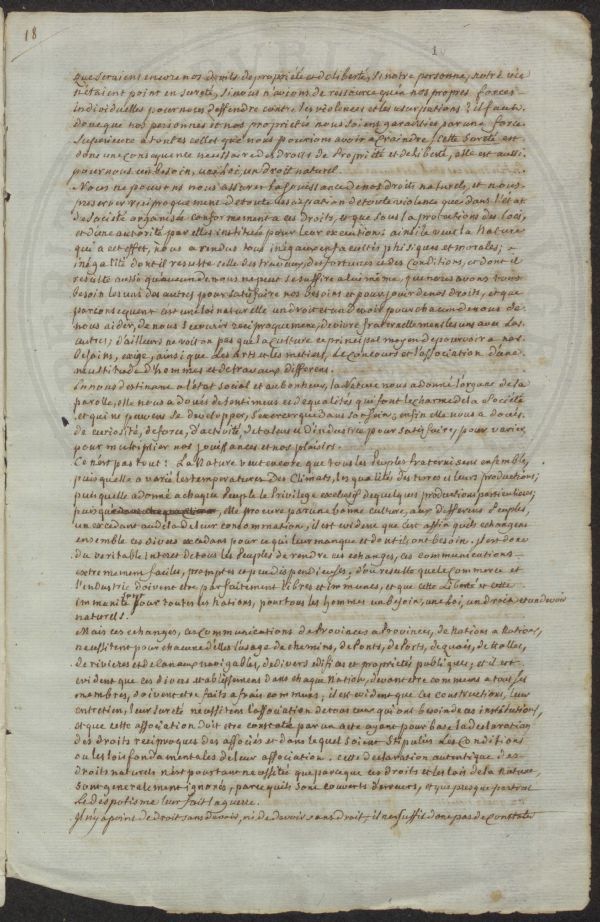 18
1
que seraient encore nos droits de propriété et de liberté, si notre personne, notre vie
n'etaient point en sureté, si nous n'avions de ressource qu'en nos propres forces
individuelles pour nous deffendre contre les violences et les usurpations? il faut
donc que nos personnes et nos proprietés nous soient garanties par une force
superieure a toutes celles que nous pourrions avoir a craindre. Cette Sureté est
donc une consequence necessaire des Droits de Propriété et de liberté, elle est aussi
pour nous un besoin, une loi, un droit naturel.
Nous ne pouvons nous assurer la jouissance de nos droits naturels, et nous
preserver reciproquement de toute usurpation de toute violence que dans l'etat
de société organisée conformement a ces Droits, et que sous la protection des loix,
et d'une autorité par elles instituée pour leur execution: ainsi le veut la Nature
qui a cet effet, nous a rendus tous inégaux en facultés phisiques et morales;
inégalité dont il resulte celle des travaux, des fortunes et des conditions, et dont il
resulte aussi qu'aucun de nous ne peut se suffire a lui même, que nous avons tous
besoin les uns des autres pour satisfaire nos besoins et pour jouir de nos droits, et que
par consequent c'est une loi naturelle un droit et un devoir pour chacun de nous de
nous aider, de nous secourir reciproquement, de vivre fraternellement les uns avec les
autres; d'ailleurs ne voit on pas que la culture ce principal moyen de pourvoir a nos
besoins, exige, ainsi que les arts et les metiers, le concours et l'association d'une
multitude d'hommes et de travaux differens.
En nous destinant a l'état social et au bonheur, la Nature nous a donné l'organe de la
parole, elle nous a doués de sentimens et de qualités qui font le charme de la société
et qui ne peuvent se developper, s'exercer que dans son sein; enfin elle nous a doués
de curiosité, de force, d'activité, de talens et d'industrie pour satisfaire, pour varier,
pour multiplier nos jouissances et nos plaisirs.
Ce n'est pas tout: La Nature veut encore que tous les Peuples fraternisent ensemble,
puisqu'elle a varié les temperatures Des Climats, les qualités des terres et leurs productions;
puisqu'elle a donné a chaque Peuple le Privilege exclusif de quelques productions particulieres;
puisque elle procure par une bonne culture, aux differens Peuples,
un excédant au dela de leur consommation, il est evident que c'est affin qu'ils echangent
ensemble ces divers excedans pour ce qui leur manque et dont ils ont besoin. il est donc
du veritable interet de tous les Peuples de rendre ces echanges, ces communications
extremement faciles, promptes et peu dispendieuses, d'ou resulte que le commerce et
l'industrie doivent etre parfaitement libres et immunes, et que cette liberté et cette
immunité sont pour toutes les Nations, pour tous les hommes un besoin, une loi, un droit et un devoir
naturels.
Mais ces echanges, ces communications de Provinces a Provinces, de Nations a Nations,
necessitent pour chacune d'elles l'usage de chemins, de Ponts, de Ports, de quais, de Halles,
de rivieres et de canaux navigables, de divers edifices et propriétés publiques; et il est
evident que ces divers etablissemens dans chaque Nation, devant etre communs a tous ses
membres, doivent etre faits a frais communs; il est evident que les constructions, leur
entretien, leur sureté necessitent l'association de tous ceux qui ont besoin de ces institutions,
et que cette association Doit etre constatée par un acte ayant pour base la declaration
des droits reciproques des associés et dans lequel soient stipulés Les Conditions
ou les lois fondamentales de leur association. cette declaration autentique des
droits naturels n'est pourtant necessitée que parce que ces droits et les lois de la nature
sont generalement ignorés, parce qu'ils sont couverts d'erreurs, et que presque partout
Le despotisme leur fait la guerre.
Il n'y a point de droit sans devoir, ni de devoir sans droit; il ne suffit donc pas de constater